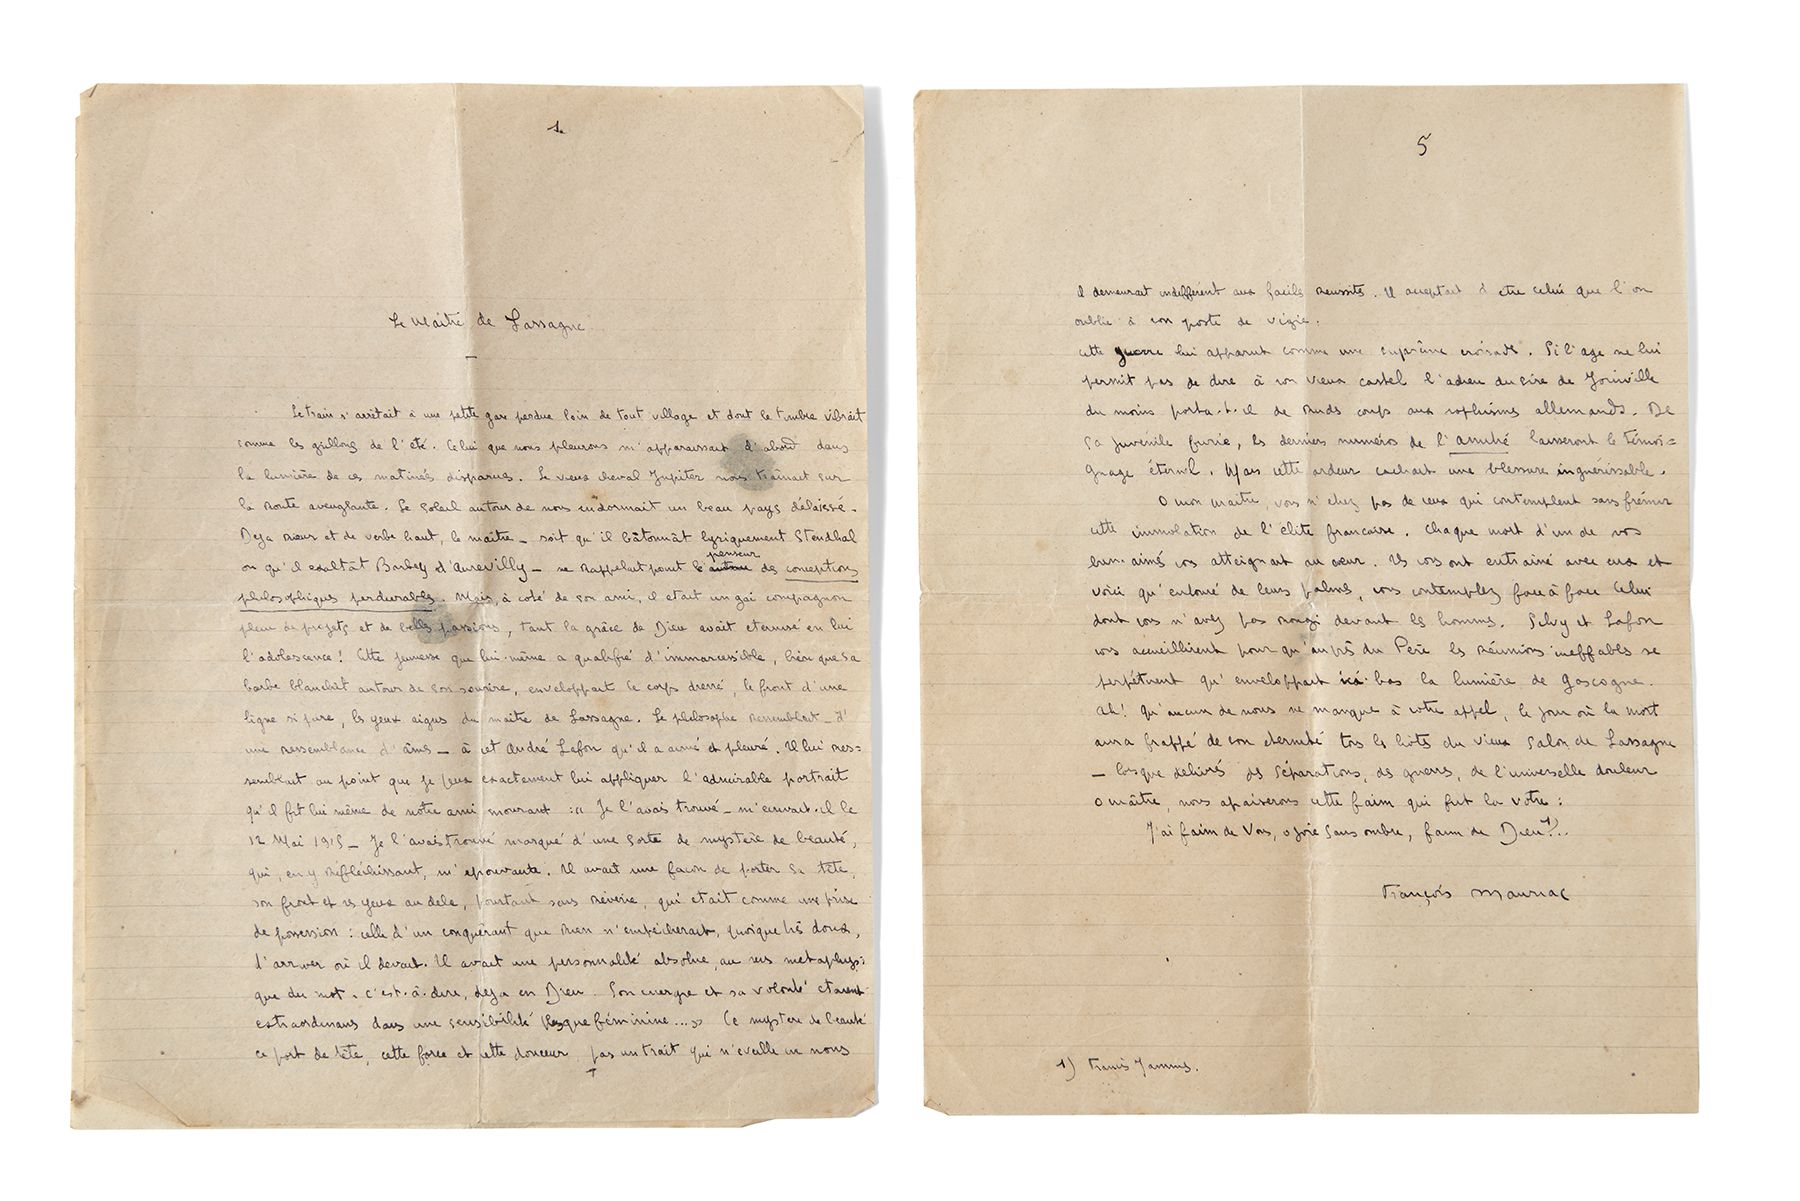 1.
Le Maitre de Lassagne
Le train s'arrêtait à une petite gare perdue loin de tout village et dont le timbre vibrait
comme les grillons de l'été. Celui que nous pleurons m'apparaissait d'abord dans
la lumière de ces matinés disparues. Le vieux cheval Jupiter nous trainait sur
la route aveuglante. Le soleil autour de nous endormait un beau pays délaissé.
Deja rieur et de verbe haut, le maitre - soit qu'il bâtonnât lyriquement Stendhal
ou qu'il exaltât Barbey d'Aurevilly - se rappelait point le penseur des conceptions
philosophiques perdurables. Mais, à coté de son ami, il était un gai compagnon
plein de projets et de belles passions, tant la grâce de Dieu avait eternisé en lui
l'adolescence! Cette jeunesse que lui-même a qualifié d'immarcessible, bien que sa
barbe blanchit autour de son sourire, enveloppait le corps dressé, le front d'une
ligne si pure, les yeux aigus du maitre de Lassagne. Le philosophe ressemblait - d'
une ressemblance d'âmes - à cet André Lafon qu'il a aimé et pleuré. Il lui res=
semblait au point que je peux exactement lui appliquer l'admirable portrait
qu'il fit lui même de notre ami mourant : « Je l'avais trouvé - m'ecrivait-il le
12 Mai 1915 - Je l'avais trouvé marqué d'une sorte de mystère de beauté,
qui, en y réfléchissant, m'epouvante. Il avait une façon de porter sa tête,
son front et ses yeux au dela, pourtant sans rêverie, qui etait comme une prise
de possession : celle d'un conquérant que rien n'empêcherait, quoique très doux,
d'arriver où il devait. Il avait une personnalité absolue, au sens metaphysi=
que du mot. c'est-à-dire, deja en Dieu. Son energie et sa volonté etaient
extraordinaires dans une sensibilité presque féminine...» Ce mystère de beauté
ce port de tête, cette force et cette douceur, pas un trait qui n'eveille en nous
5
il demeurait indifférent aux faciles réussites. Il acceptait d'etre celui que l'on
oublie à son poste de vigie.
cette guerre lui apparut comme une suprême croisade. Si l'age ne lui
permit pas de dire à son vieux castel l'adieu du sire de Joinville
du moins porta-t-il de ruds coups aux sophismes allemands. De
sa juvénile furie, les derniers numéros de l'amitié laisseront le témoi=
gnage éternel. Mais cette ardeur cachait une blessure inguérissable.
O mon maitre, vous n'etiez pas de ceux qui contemplent sans frémir
cette immolation de l'élite francaise. Chaque mort d'un de vos
bien-aimés vous atteignait au cœur. Ils vous ont entrainé avec eux et
voici qu'entouré de leurs palmes, vous contemplez face à face Celui
dont vous n'avez pas rougi devant les hommes. Selvy et Lafon
vous accueillirent pour qu'auprès du Père les Réunions ineffables se
perpétuent qu'enveloppait ici-bas la lumière de Gascogne.
Ah! qu'aucun de nous ne manque à votre appel, le jour où la mort
aura frappé de son eternité tos les hôts du vieux salon de Lassagne
- lorsque délivrés des séparations, des guerres, de l'universelle douleur
O maître, nous apaiserons cette faim qui fut la votre :
J'ai faim de Vous, o joie sans ombre, faim de Dieu¹...
François Mauriac
1) Francis Jammes.